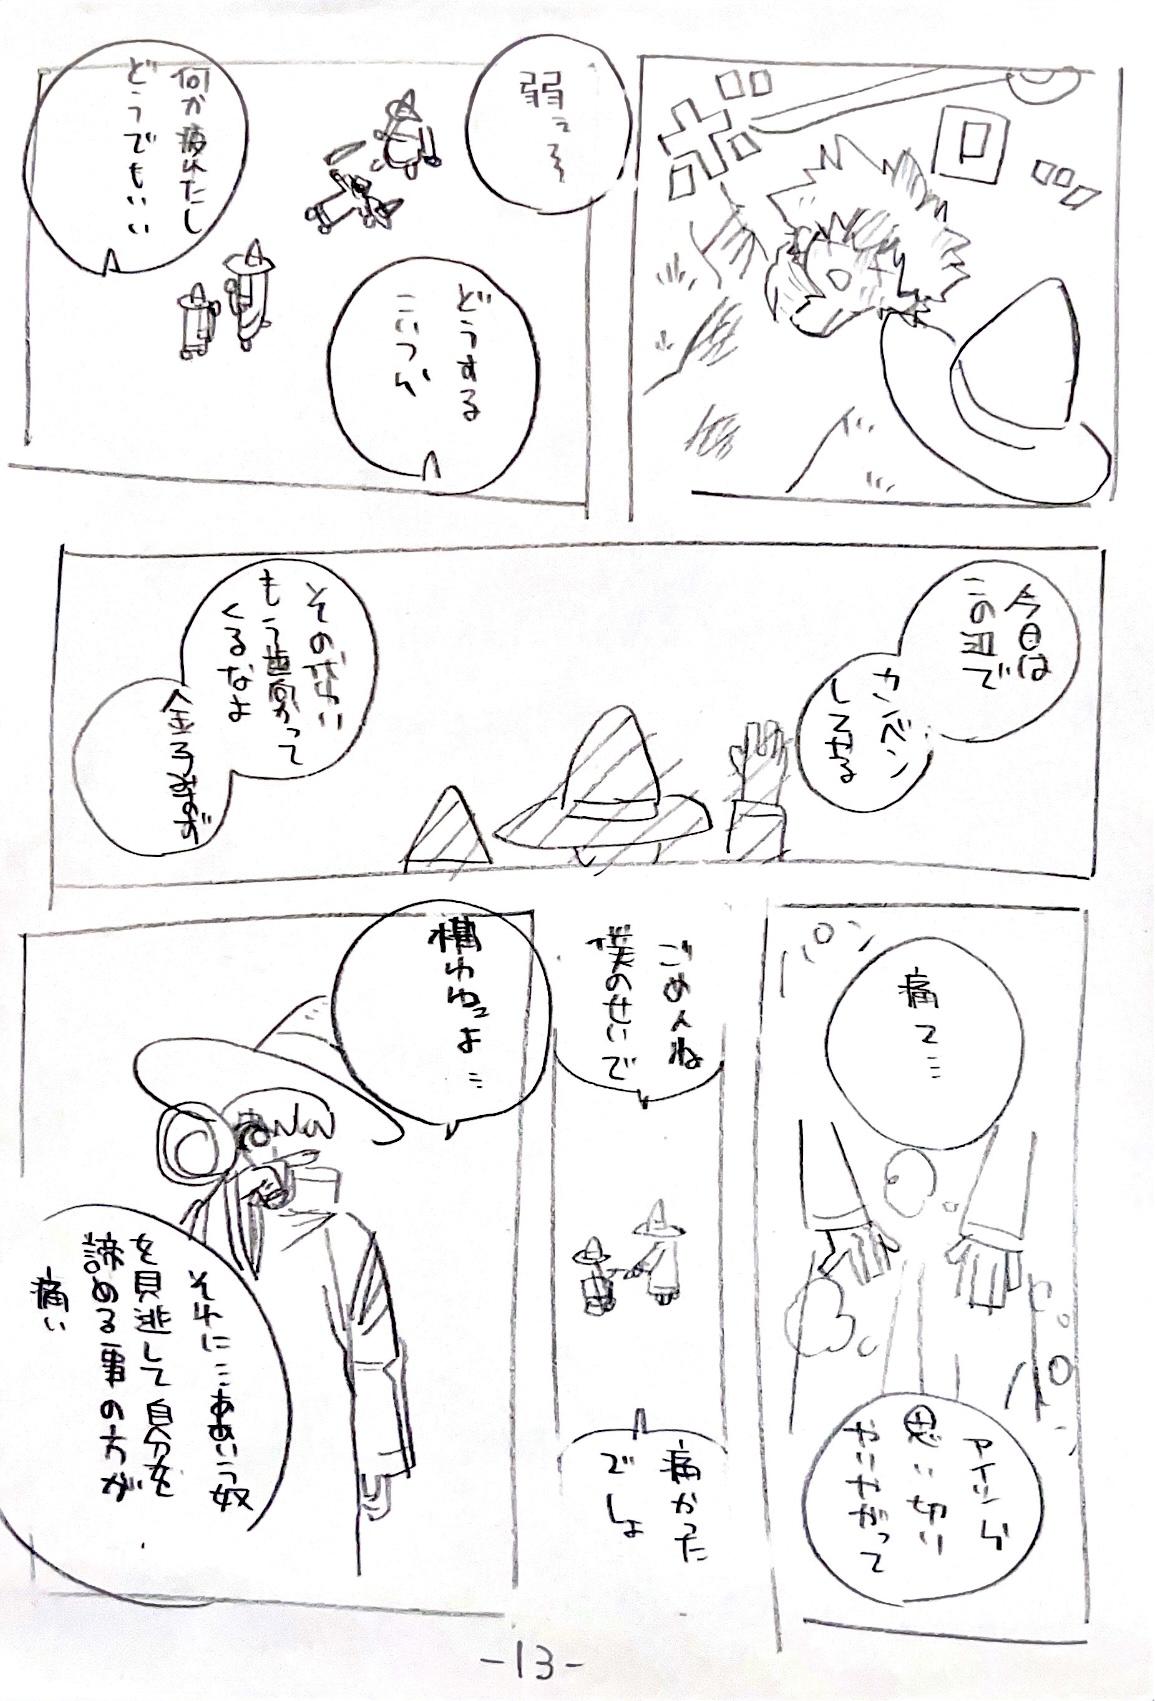 弱っそ
どうする
こいつら
何か疲れたし
どうでもいい
今日は
この辺で
カンベン
してやる
その代わり
もう歯向かって
くるなよ
金子みすず
痛て…
アイツら
思い切り
やりやがって
ごめんね
僕のせいで
痛かった
でしょ
構わねえよ…
それに…ああいう奴
を見逃して自分を
諦める事の方が
痛い
-13-